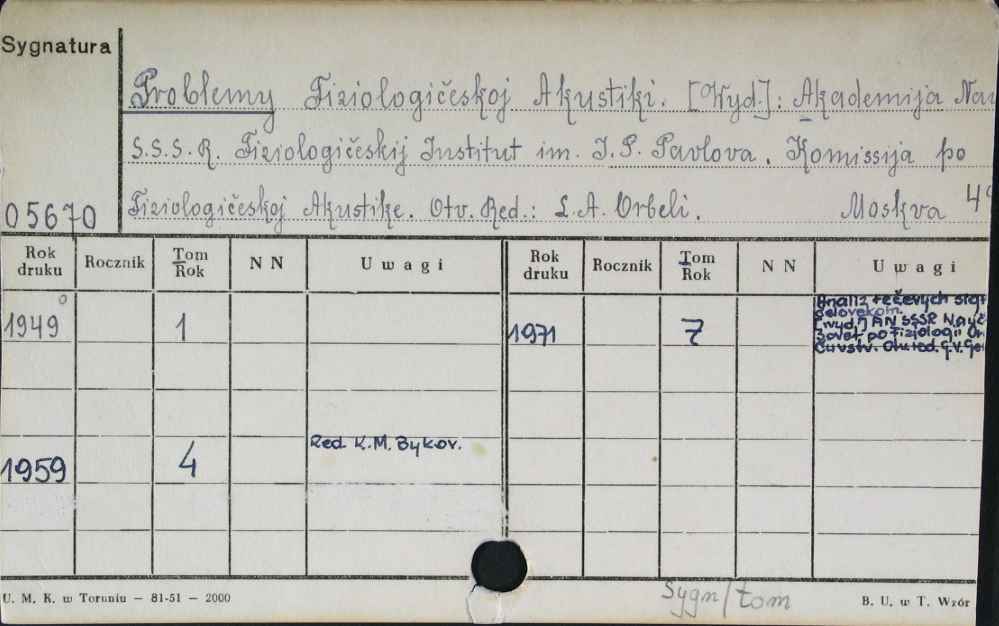 Sygnatura
Problemy Fiziologičeskoj Akustiki. [Wyd.]: Akademija Nau
S.S.S.R. Fiziologičeskij Institut im. I. P. Pavlova. Komissija po
05670 Fiziologičeskoj Akustike. Otv. Red.: L. A. Orbeli. Moskva 49
Rok druku Rocznik Tom Rok N N Uwagi Rok druku Rocznik Tom Rok N N Uwagi
1949 1 1971 7 Analiz rečevych
čelovekom.
[wyd.] AN SSSR Nauč
Sovet po Fiziologii
Čuvstv. Otv. red. G. V.
1959 4 Red. K. M. Bykov.
U. M. K. w Toruniu — 81-51 — 2000 Sygn/tom B. U. w T. Wzór